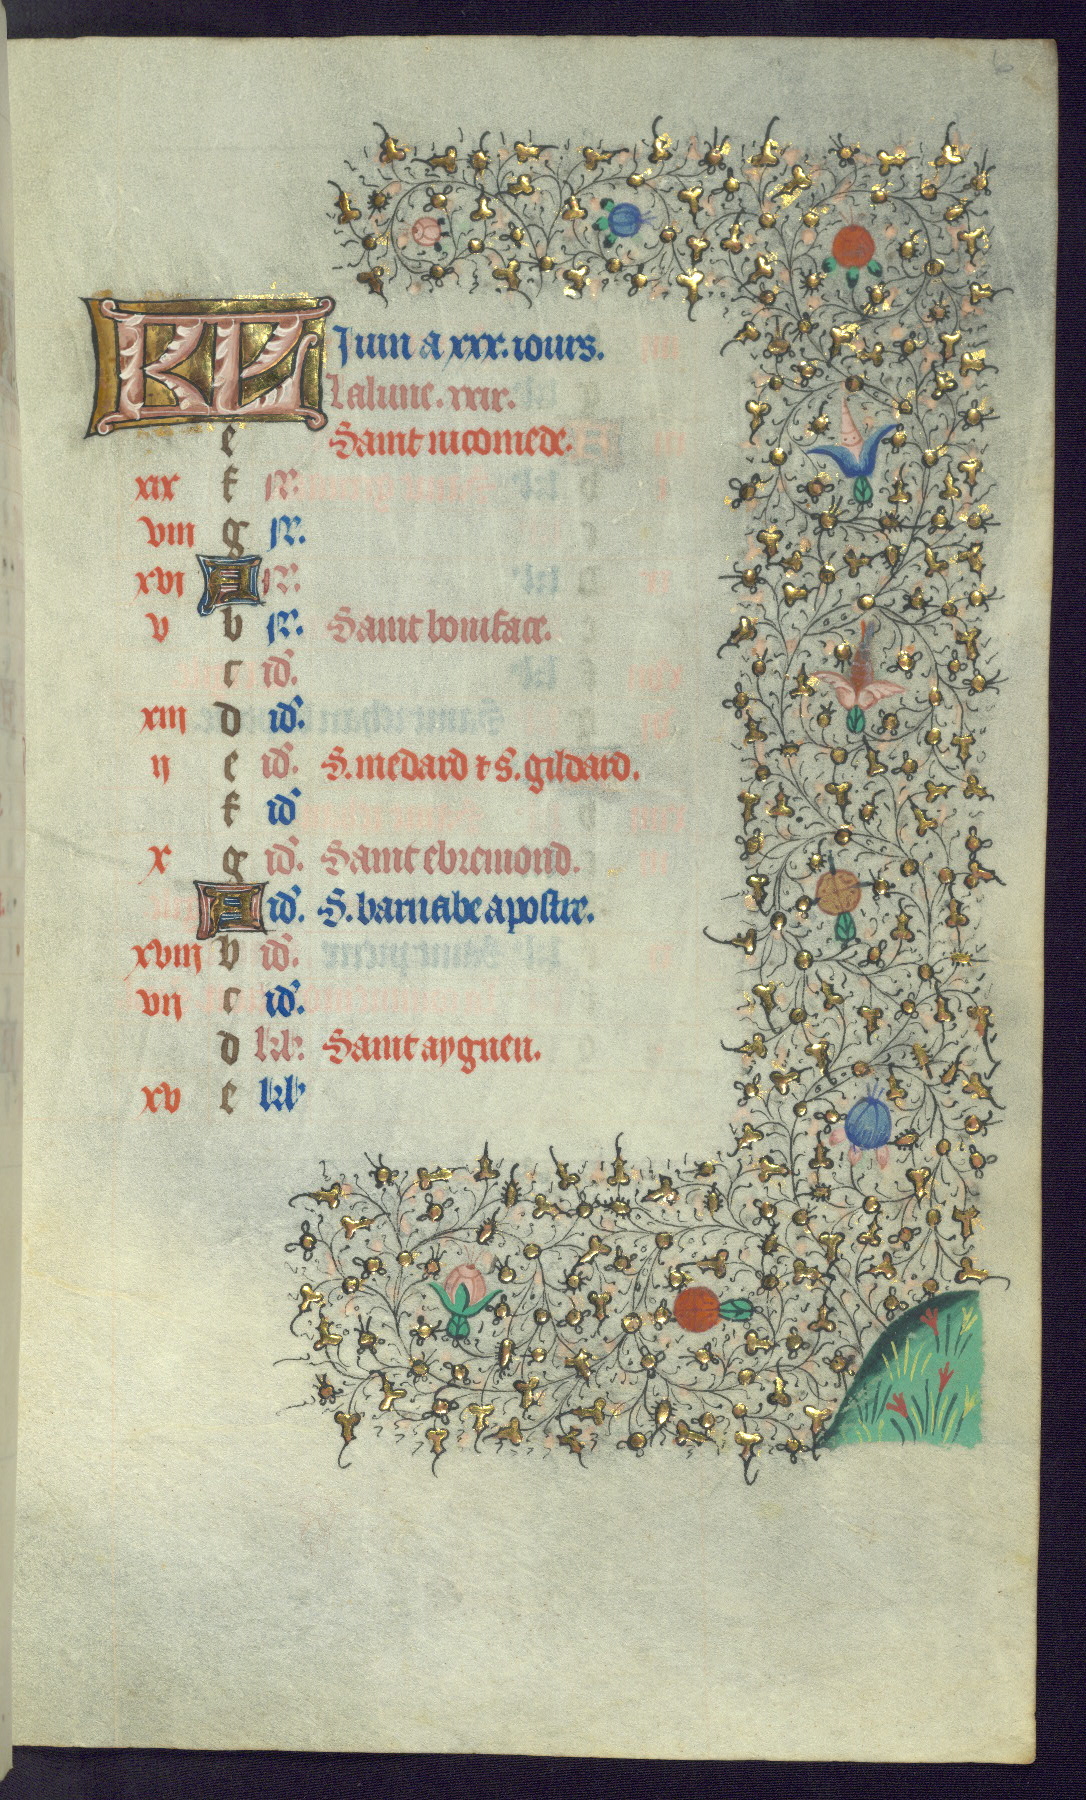 6
KL Juin a xxx. iours.
La lune. xxix.
e Saint nicomede.
xix f N.
viii g N.
xvi A N.
v b N. Saint boniface.
c id.
xiii d id.
ii e id. S. medard & S. gildard.
f id
x g id. Saint ebremond.
A id. S. barnabe apostre.
xviii b id.
vii c id.
d kl. Saint aygnen.
xv e kl